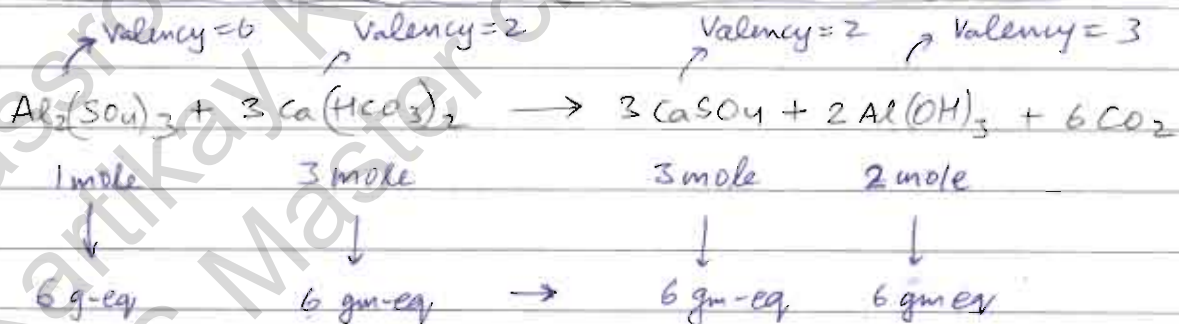 Valency=6 Valency=2 Valency=2 Valency=3
Al₂(SO₄)₃ + 3 Ca(HCO₃)₂ → 3 CaSO₄ + 2 Al(OH)₃ + 6 CO₂
1 mole 3 mole 3 mole 2 mole
6 g-eq 6 gm-eq → 6 gm-eq 6 gm eq
Master